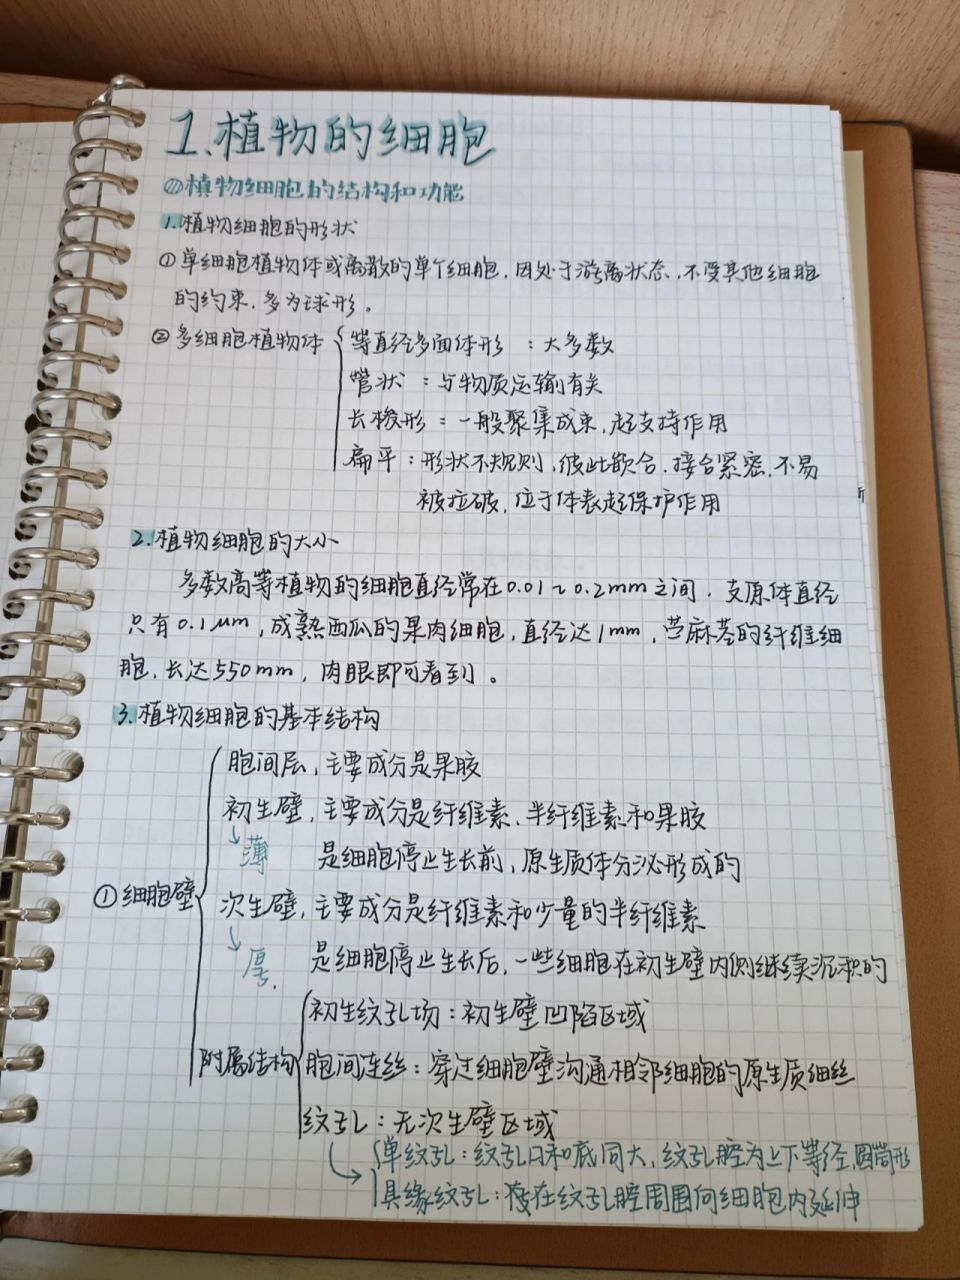 1、植物的细胞
植物细胞的结构和功能
1.植物细胞的形状
①单细胞植物体或离散的单个细胞，因处于游离状态，不受其他细胞
的约束，多为球形。
②多细胞植物体
等直径多面体形：大多数
管状：与物质运输有关
长梭形：一般聚集成束，起支持作用
扁平：形状不规则，彼此嵌合，接合紧密，不易
被拉破，位于体表起保护作用
2.植物细胞的大小
多数高等植物的细胞直径常在0.01~0.2mm之间，支原体直径
只有0.1μm，成熟西瓜的果肉细胞，直径达1mm，苎麻茎的纤维细
胞，长达550mm，肉眼即可看到。
3.植物细胞的基本结构
①细胞壁
胞间层，主要成分是果胶
初生壁，主要成分是纤维素、半纤维素和果胶
↓薄 是细胞停止生长前，原生质体分泌形成的
次生壁，主要成分是纤维素和少量的半纤维素
↓厚 是细胞停止生长后，一些细胞在初生壁内侧继续沉积的
附属结构
初生纹孔场：初生壁凹陷区域
胞间连丝：穿过细胞壁沟通相邻细胞的原生质细丝
纹孔：无次生壁区域
单纹孔：纹孔口和底同大，纹孔腔为上下等径，圆筒形
具缘纹孔：在纹孔腔周围向细胞内延伸